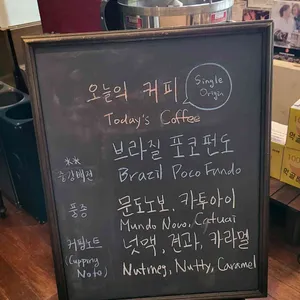 오늘의 커피
Single Origin
Today's Coffee
브라질 포코펀도
Brazil Poco Fundo
중강배전
품종
문도노보, 카투아이
Mundo Novo, Catuai
커핑노트
(Cupping Note)
넛맥, 견과, 카라멜
Nutmeg, Nutty, Caramel